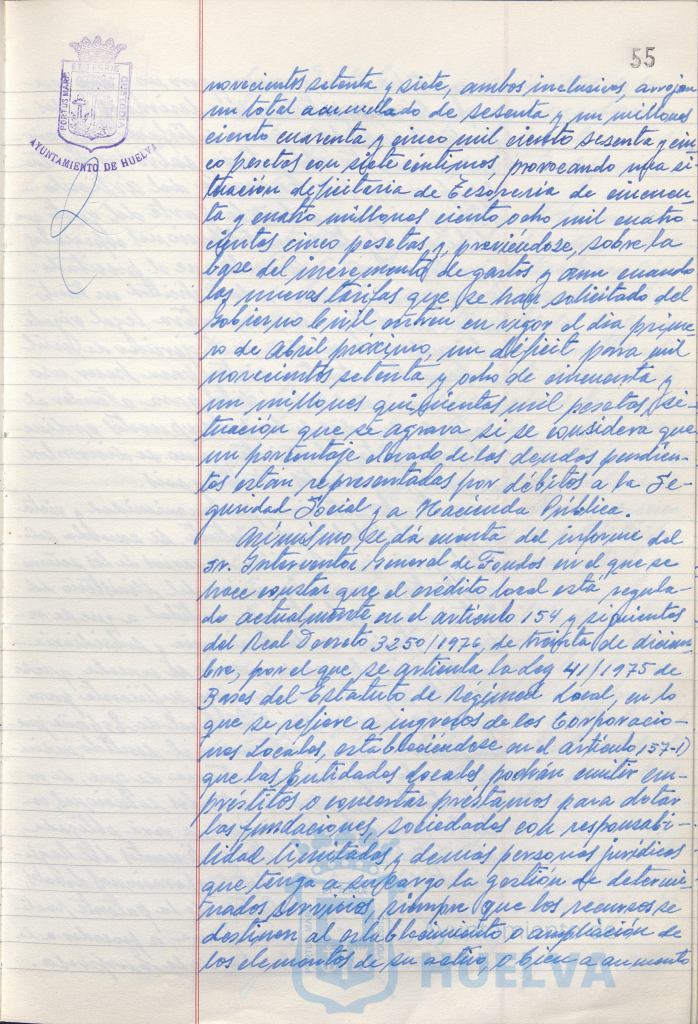 55
PORTUS MARIS
ET TERRAE
CUSTODIA
AYUNTAMIENTO DE HUELVA
novecientos setenta y siete, ambos inclusives, arrojan
un total acumulado de sesenta y un millones
ciento cuarenta y cinco mil ciento sesenta y cin-
co pesetas con siete centimos, provocando una si-
tuación deficitaria de Tesoreria de cincuen-
ta y cuatro millones ciento ocho mil cuatro
cientos cinco pesetas y, previéndose, sobre la
base del incremento de gastos y aun cuando
las nuevas tarifas que se han solicitado del
Gobierno Civil entren en vigor el dia prime-
ro de Abril proximo, un déficit para mil
novecientos setenta y ocho de cincuenta y
un millones quinientas mil pesetas, si-
tuación que se agrava si se considera que
un porcentaje elevado de las deudas pendien-
tes están representadas por débitos a la Se-
guridad Social y a Hacienda Pública.
Asimismo se dá cuenta del informe del
Sr. Interventor General de Fondos en el que se
hace constar que el crédito local está regula-
do actualmente en el articulo 154 y siguientes
del Real Decreto 3250/1976, de treinta de diciem-
bre, por el que se articula la Ley 41/1975 de
Bases del Estatuto de Régimen Local, en lo
que se refiere a ingresos de las Corporacio-
nes Locales, estableciéndose en el articulo 157-1)
que las Entidades Locales podrán emitir em-
préstitos o concertar préstamos para dotar
las fundaciones, sociedades con responsabi-
lidad limitada y demás personas jurídicas
que tenga a su cargo la gestión de determi-
nados servicios siempre que los recursos se
destinen al establecimiento o ampliación de
los elementos de su activo, o bien a aumento
HUELVA